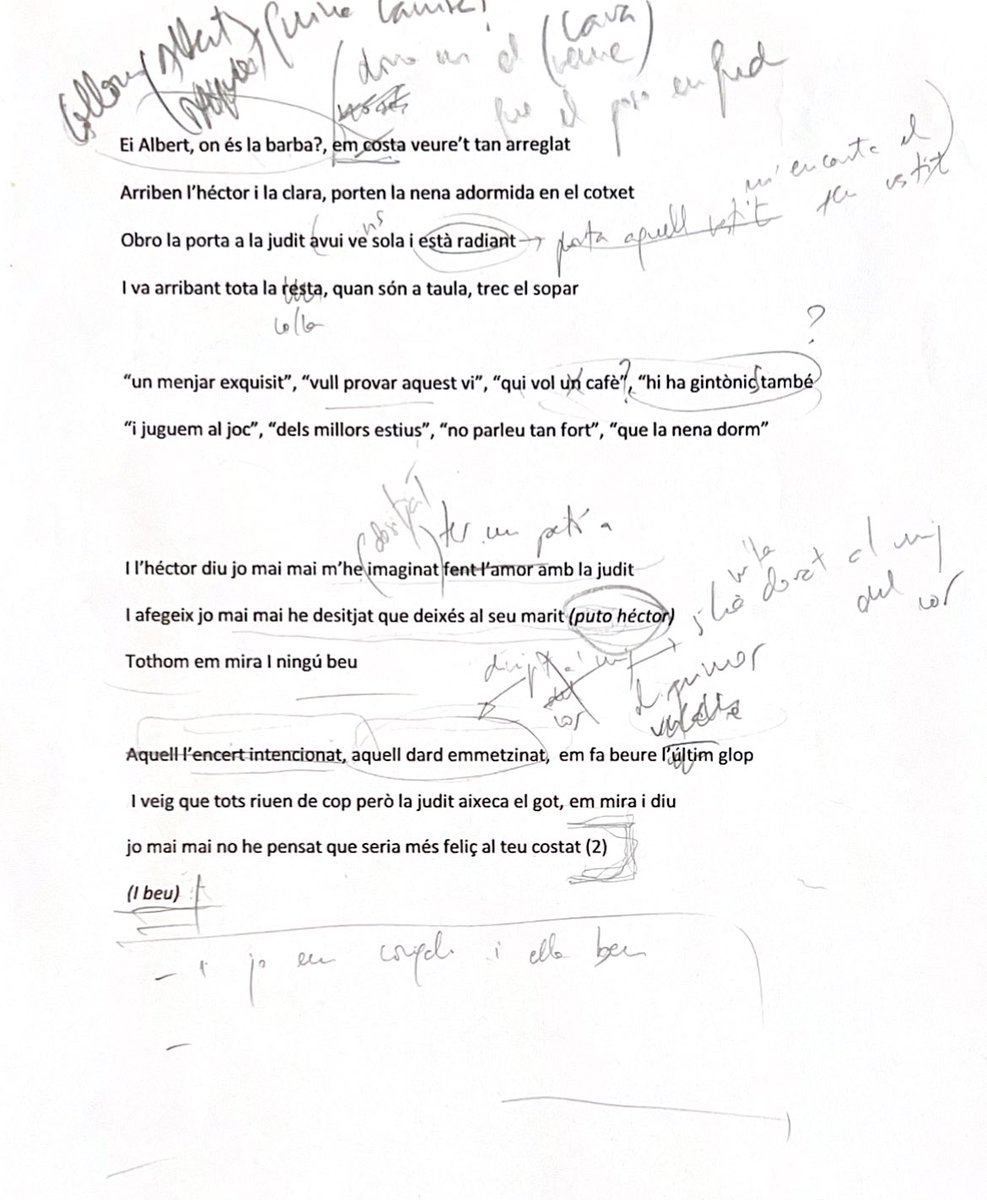 Collons Albert, quina camisa!
dona'm el cava
veure
que el poso en fred
Ei Albert, on és la barba?, em costa veure’t tan arreglat
Arriben l’héctor i la clara, porten la nena adormida en el cotxet
m'encanta el
teu vestit
ns
Obro la porta a la judit avui ve sola i està radiant
porta aquell vestit
I va arribant tota la resta, quan són a taula, trec el sopar
colla
?
“un menjar exquisit”, “vull provar aquest vi”, “qui vol un cafè”, “hi ha gintònic també
?
“i juguem al joc”, “dels millors estius”, “no parleu tan fort”, “que la nena dorm”
desitjat
fer un petó a
I l’héctor diu jo mai mai m’he imaginat fent l’amor amb la judit
al mig
del cor
I afegeix jo mai mai he desitjat que deixés al seu marit (puto héctor)
Tothom em mira I ningú beu
cor
el primer
Aquell l’encert intencionat, aquell dard emmetzinat, em fa beure l’últim glop
I veig que tots riuen de cop però la judit aixeca el got, em mira i diu
jo mai mai no he pensat que seria més feliç al teu costat (2)
(I beu)
- i jo em congelo i ella beu
-